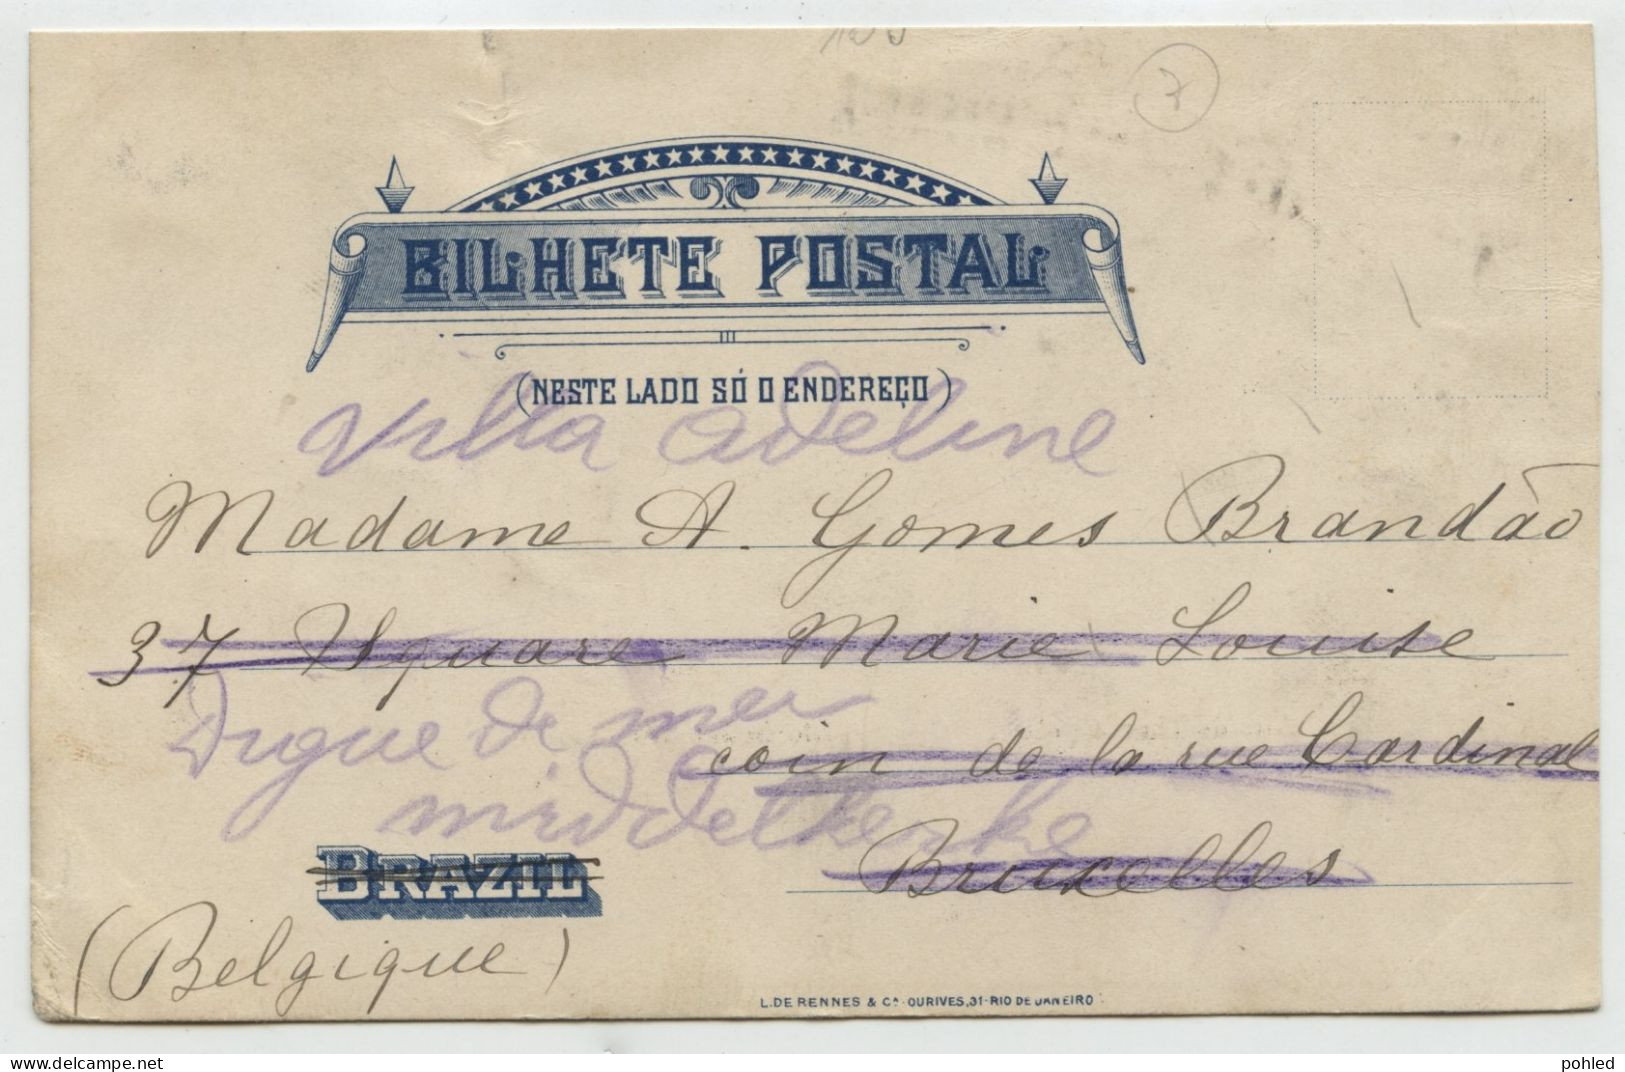 7
BILHETE POSTAL
(NESTE LADO SÓ O ENDEREÇO)
Villa Adeline
Madame A. Gomes Brandão
37 Square Marie Louise
Digue de mer
coin de la rue Cardinal
Middelkerke
Bruxelles
BRAZIL
(Belgique)
L. DE RENNES & Cª. OURIVES, 31-RIO DE JANEIRO
pohled